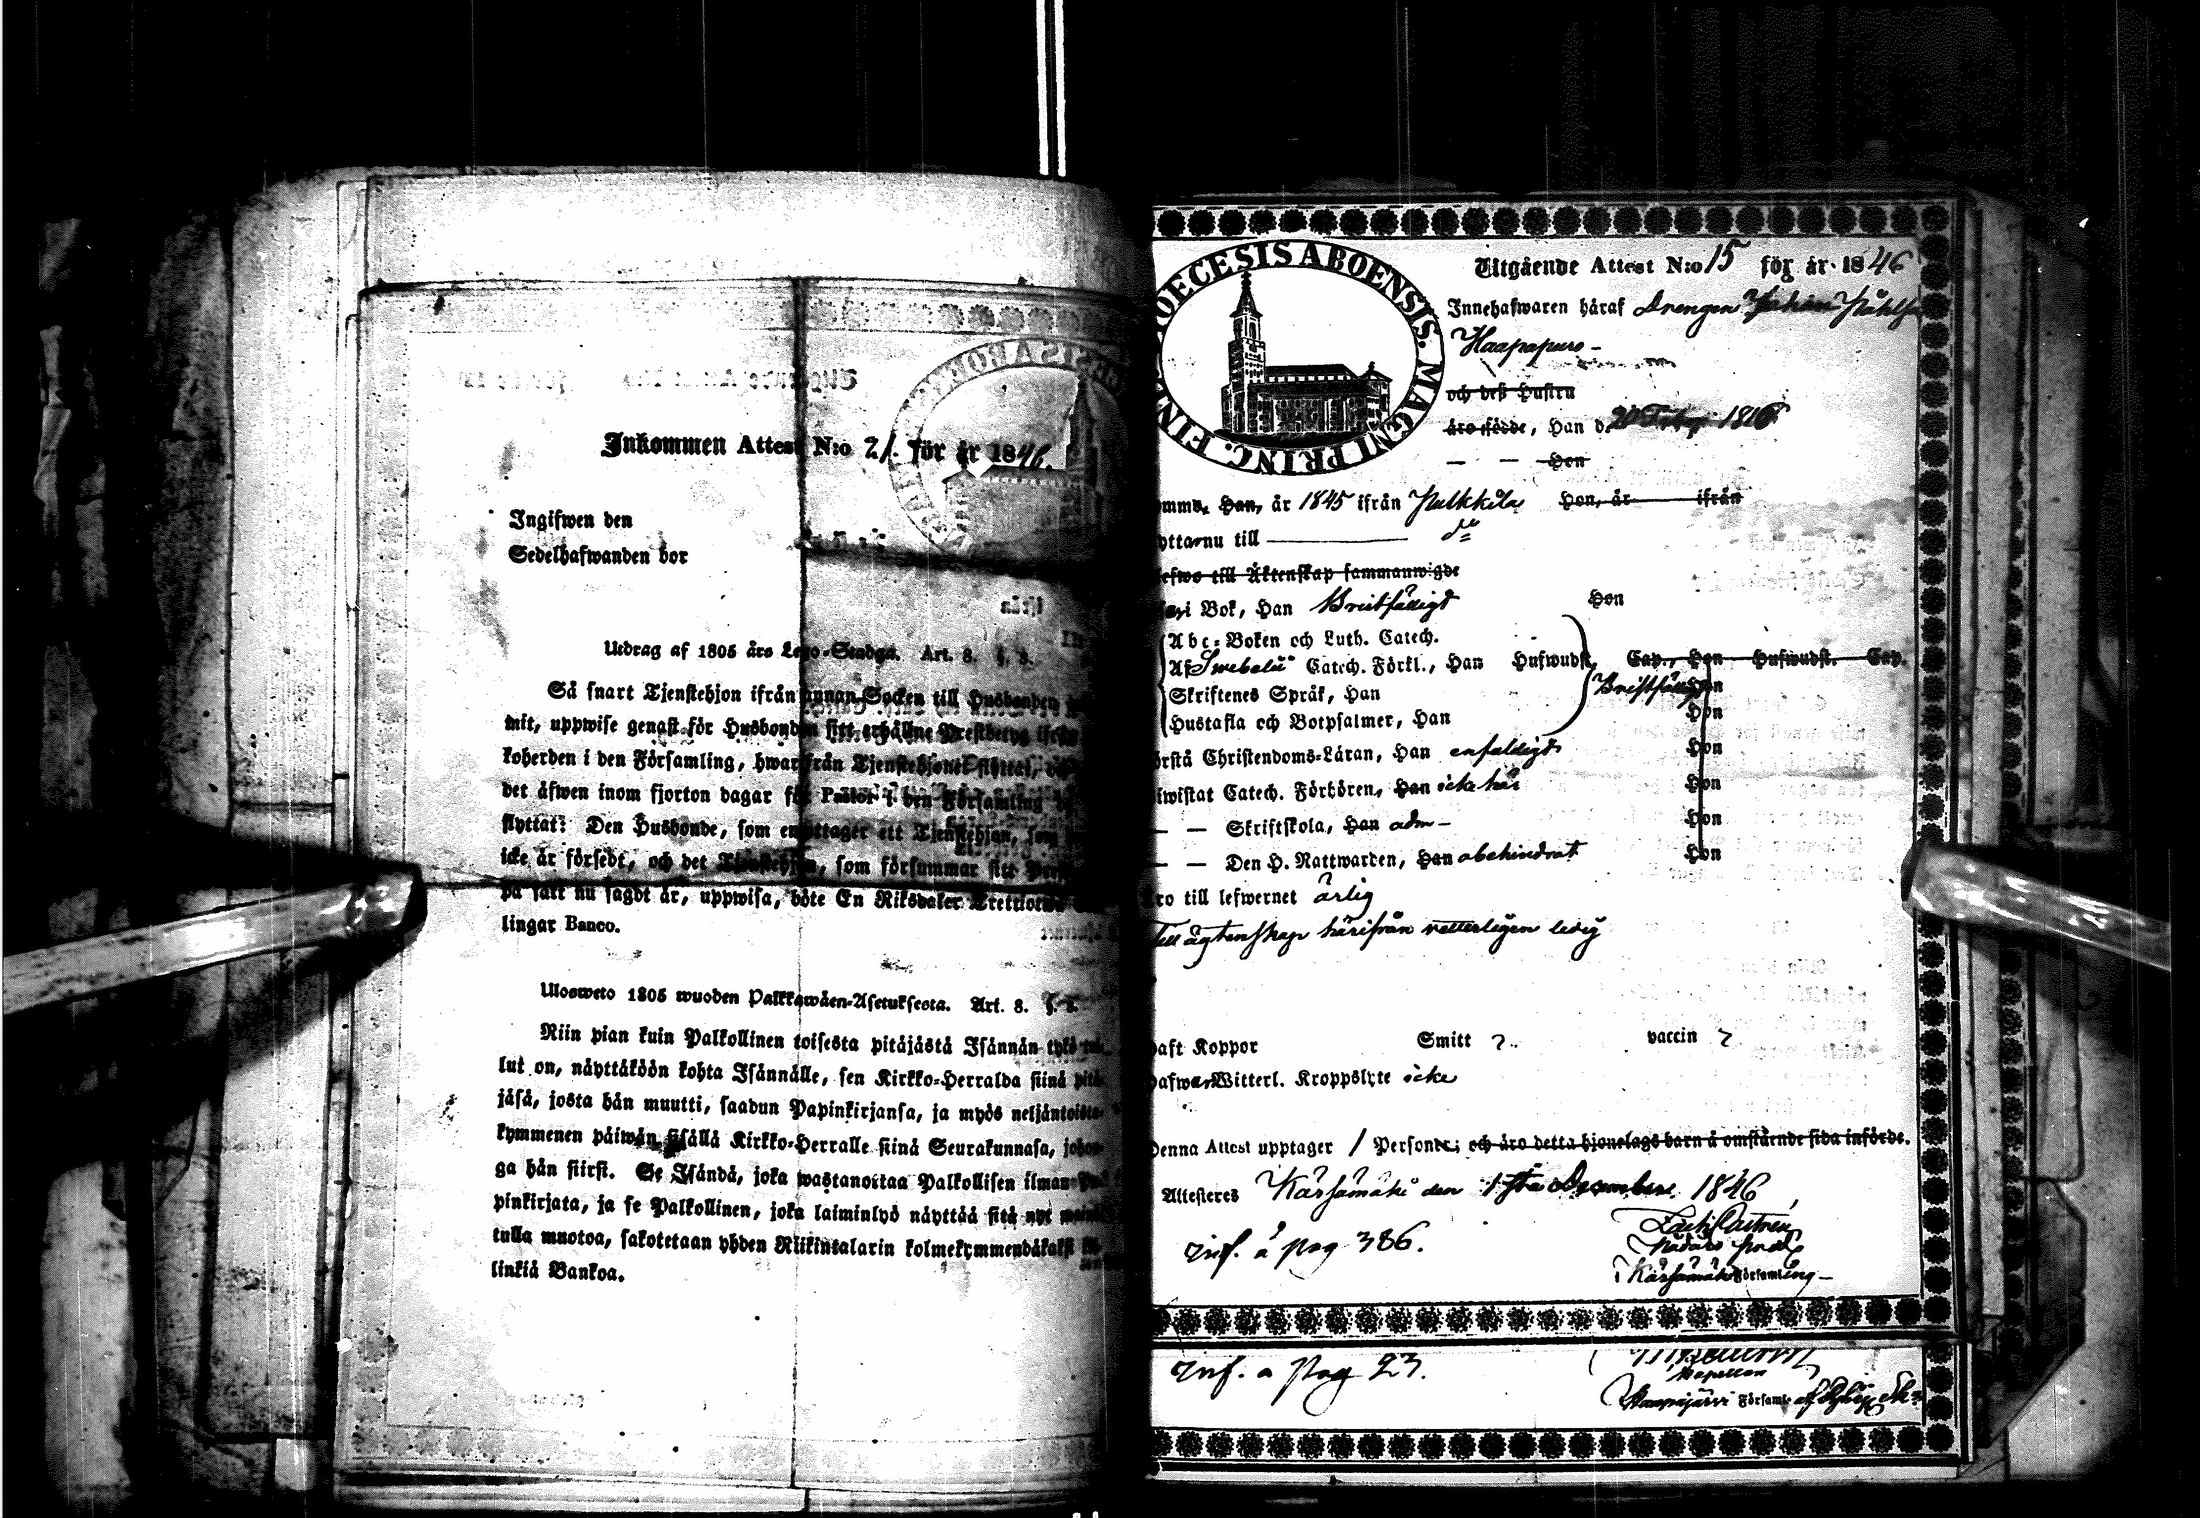 Inkommen Attest N:o 21. för år 1846.
Ingifwen den
Sedelhafwanden bor
Utdrag af 1805 års Lego-Stadga. Art. 8. §. 3.
Så snart Tjenstehjon ifrån annan Socken till Husbonden
mit, uppwise genast för Husbonden sitt erhållne Prestbetyg
koherden i den Församling, hwarifrån Tjenstehjonet flyttat,
det äfwen inom fjorton dagar för Pastor i den Församling
flyttat: Den Husbonde, som emottager ett Tjenstehjon, som
icke är försedt, och det Tjenstehjon, som försummar sitt
på sätt nu sagdt är, uppwisa, böte En Riksdaler Trettiotwå
lingar Banco.
Ulosweto 1805 wuoden Palkkawäen-Asetuksesta. Art. 8. §. 3.
Niin pian kuin Palkollinen toisesta pitäjästä Isännän tykö
lut on, näyttäköön kohta Isännälle, sen Kirkko-Herralda siinä pitä-
jäsä, josta hän muutti, saadun Papinkirjansa, ja myös neljäntoista-
kymmenen päiwän sisällä Kirkko-Herralle siinä Seurakunnasa, johon-
ga hän siirsi. Se Isändä, joka wastanottaa Palkollisen ilman Pa-
pinkirjata, ja se Palkollinen, joka laiminlyö näyttää sitä nyt
tulla muotoa, sakotetaan yhden Riikintalarin kolmekymmendäkaksi
linkiä Bankoa.
DIOECESIS ABOENSIS. MAGNI PRINC. FINL.
Utgående Attest N:o 15 för år 1846
Innehafwaren häraf Drengen
Haapapuro -
och deß Hustru
äro födde, Han d.
— — Hon
omme, Han, år 1845 ifrån Pulkkila Hon, år ifrån
yttar nu till ——— do
efwo till Äktenskap sammanwigde
i Bok, Han Bristfälligt Hon
Abc-Boken och Luth. Catech.
Af Swebelii Catech. Förkl., Han Hufwudst. Cap., Hon Hufwudst. Cap.
Skriftenes Språk, Han Bristfälligt Hon
Hustafla och Botpsalmer, Han Hon
örstå Christendoms-Läran, Han enfaldigt Hon
iwistat Catech. Förhören, Han icke här Hon
— — Skriftskola, Han adm - Hon
— — Den H. Nattwarden, Han obehindrat Hon
ro till lefwernet ärlig
till ägtenskap härifrån vetterligen ledig
haft Koppor Smitt ? vaccin ?
hafwa Witterl. Kroppslyte icke
Denna Attest upptager 1 Personer; och äro detta hjonelags barn å omstående sida införde.
Attesteres Kärsämäki den 1sta December 1846
inf. å pag 386.
i Kärsämäki Församling -
inf. a pag 23.
Kapellan
Haapajärvi Församl.